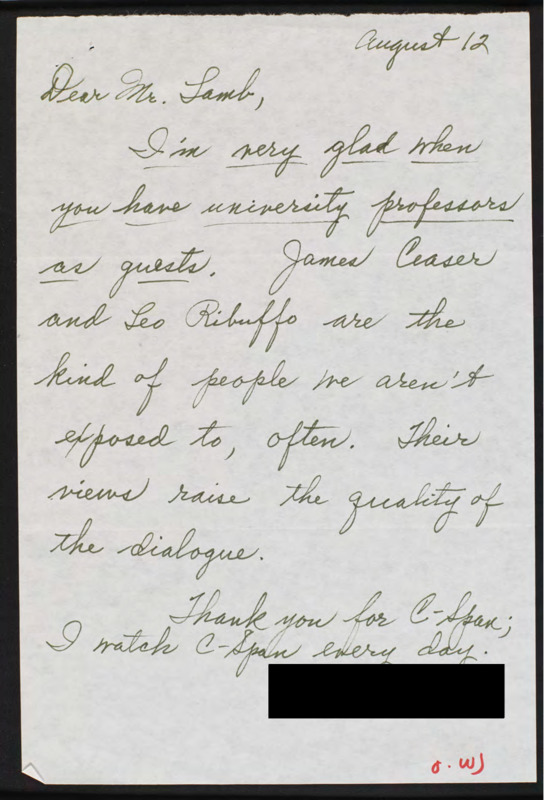 August 12
Dear Mr. Lamb,
I'm very glad when
you have university professors
as guests. James Ceaser
and Leo Ribuffo are the
kind of people we aren't
exposed to, often. Their
views raise the quality of
the dialogue.
Thank you for C-Span;
I watch C-Span every day.